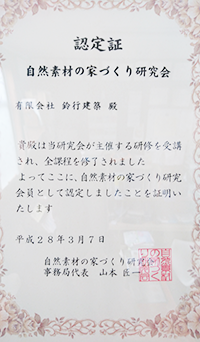 認定証
自然素材の家づくり研究会
有限会社 鈴行建築 殿
貴殿は当研究会が主催する研修を受講
され、全課程を修了されました
よってここに、自然素材の家づくり研究
会員として認定しましたことを証明い
たします
平成28年3月7日
自然素材の家づくり研究会
事務局代表 山本 匠一